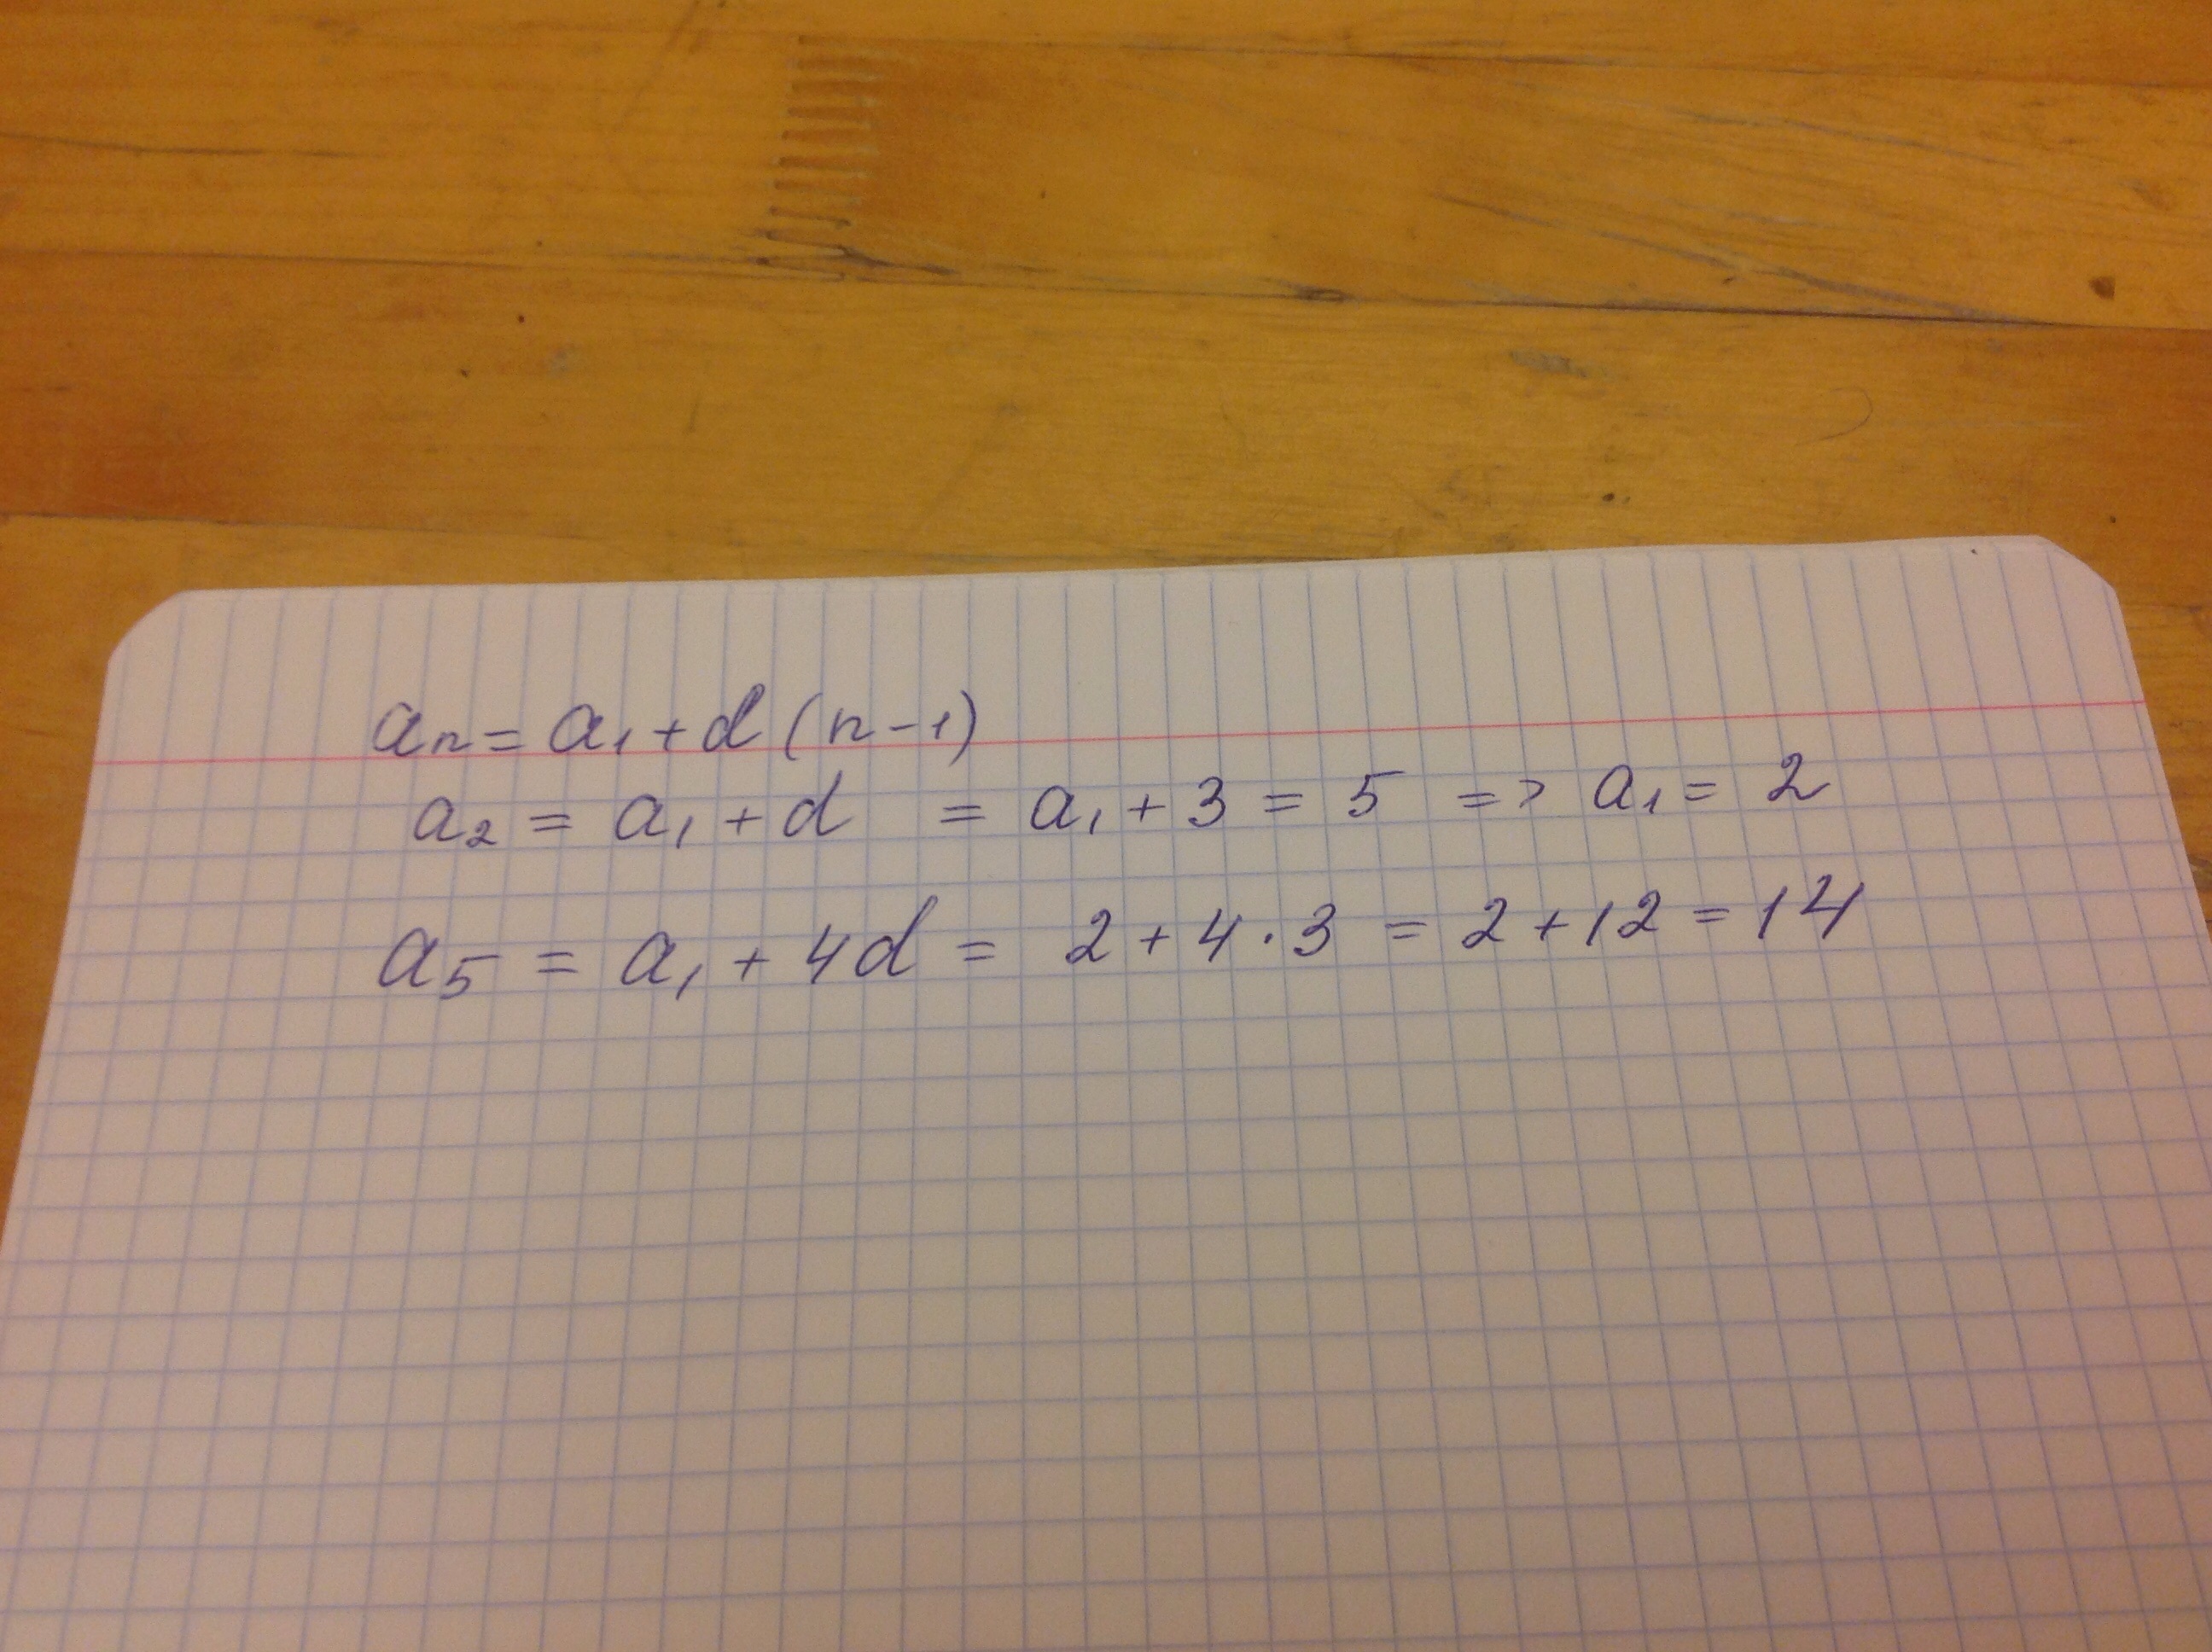 aₙ = a₁ + d (n - 1)
a₂ = a₁ + d = a₁ + 3 = 5 => a₁ = 2
a₅ = a₁ + 4d = 2 + 4 · 3 = 2 + 12 = 14